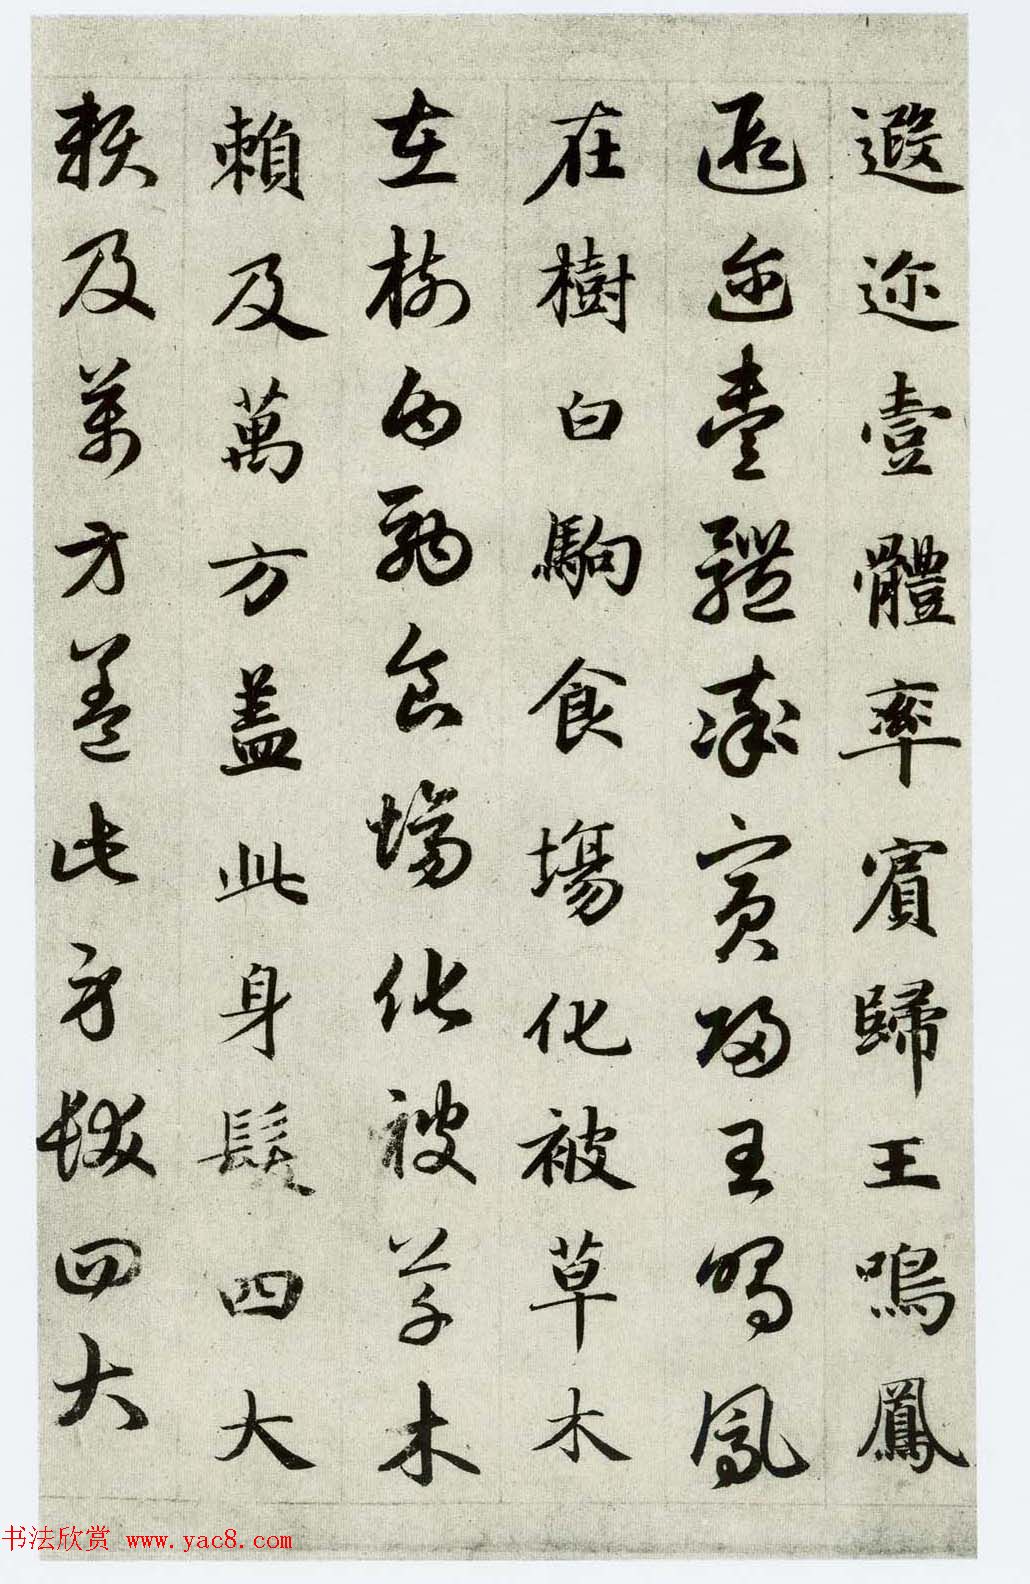 遐迩壹體率賓歸王鳴鳳
遐迩壹體率賓歸王鳴鳳
在樹白駒食場化被草木
在樹白駒食場化被草木
賴及萬方盖此身髮四大
賴及萬方盖此身髮四大
书法欣赏 www.yac8.com